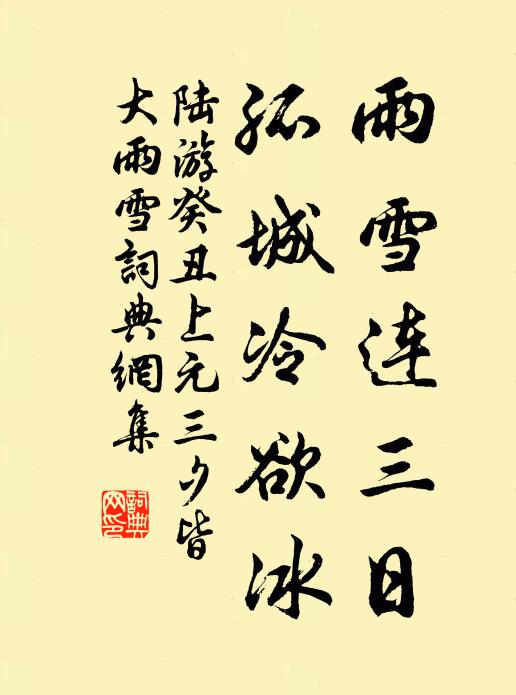 雨雪连三日
孤城冷欲冰
陆游癸丑上元三夕皆
大雨雪詞典網集
詞典
网印